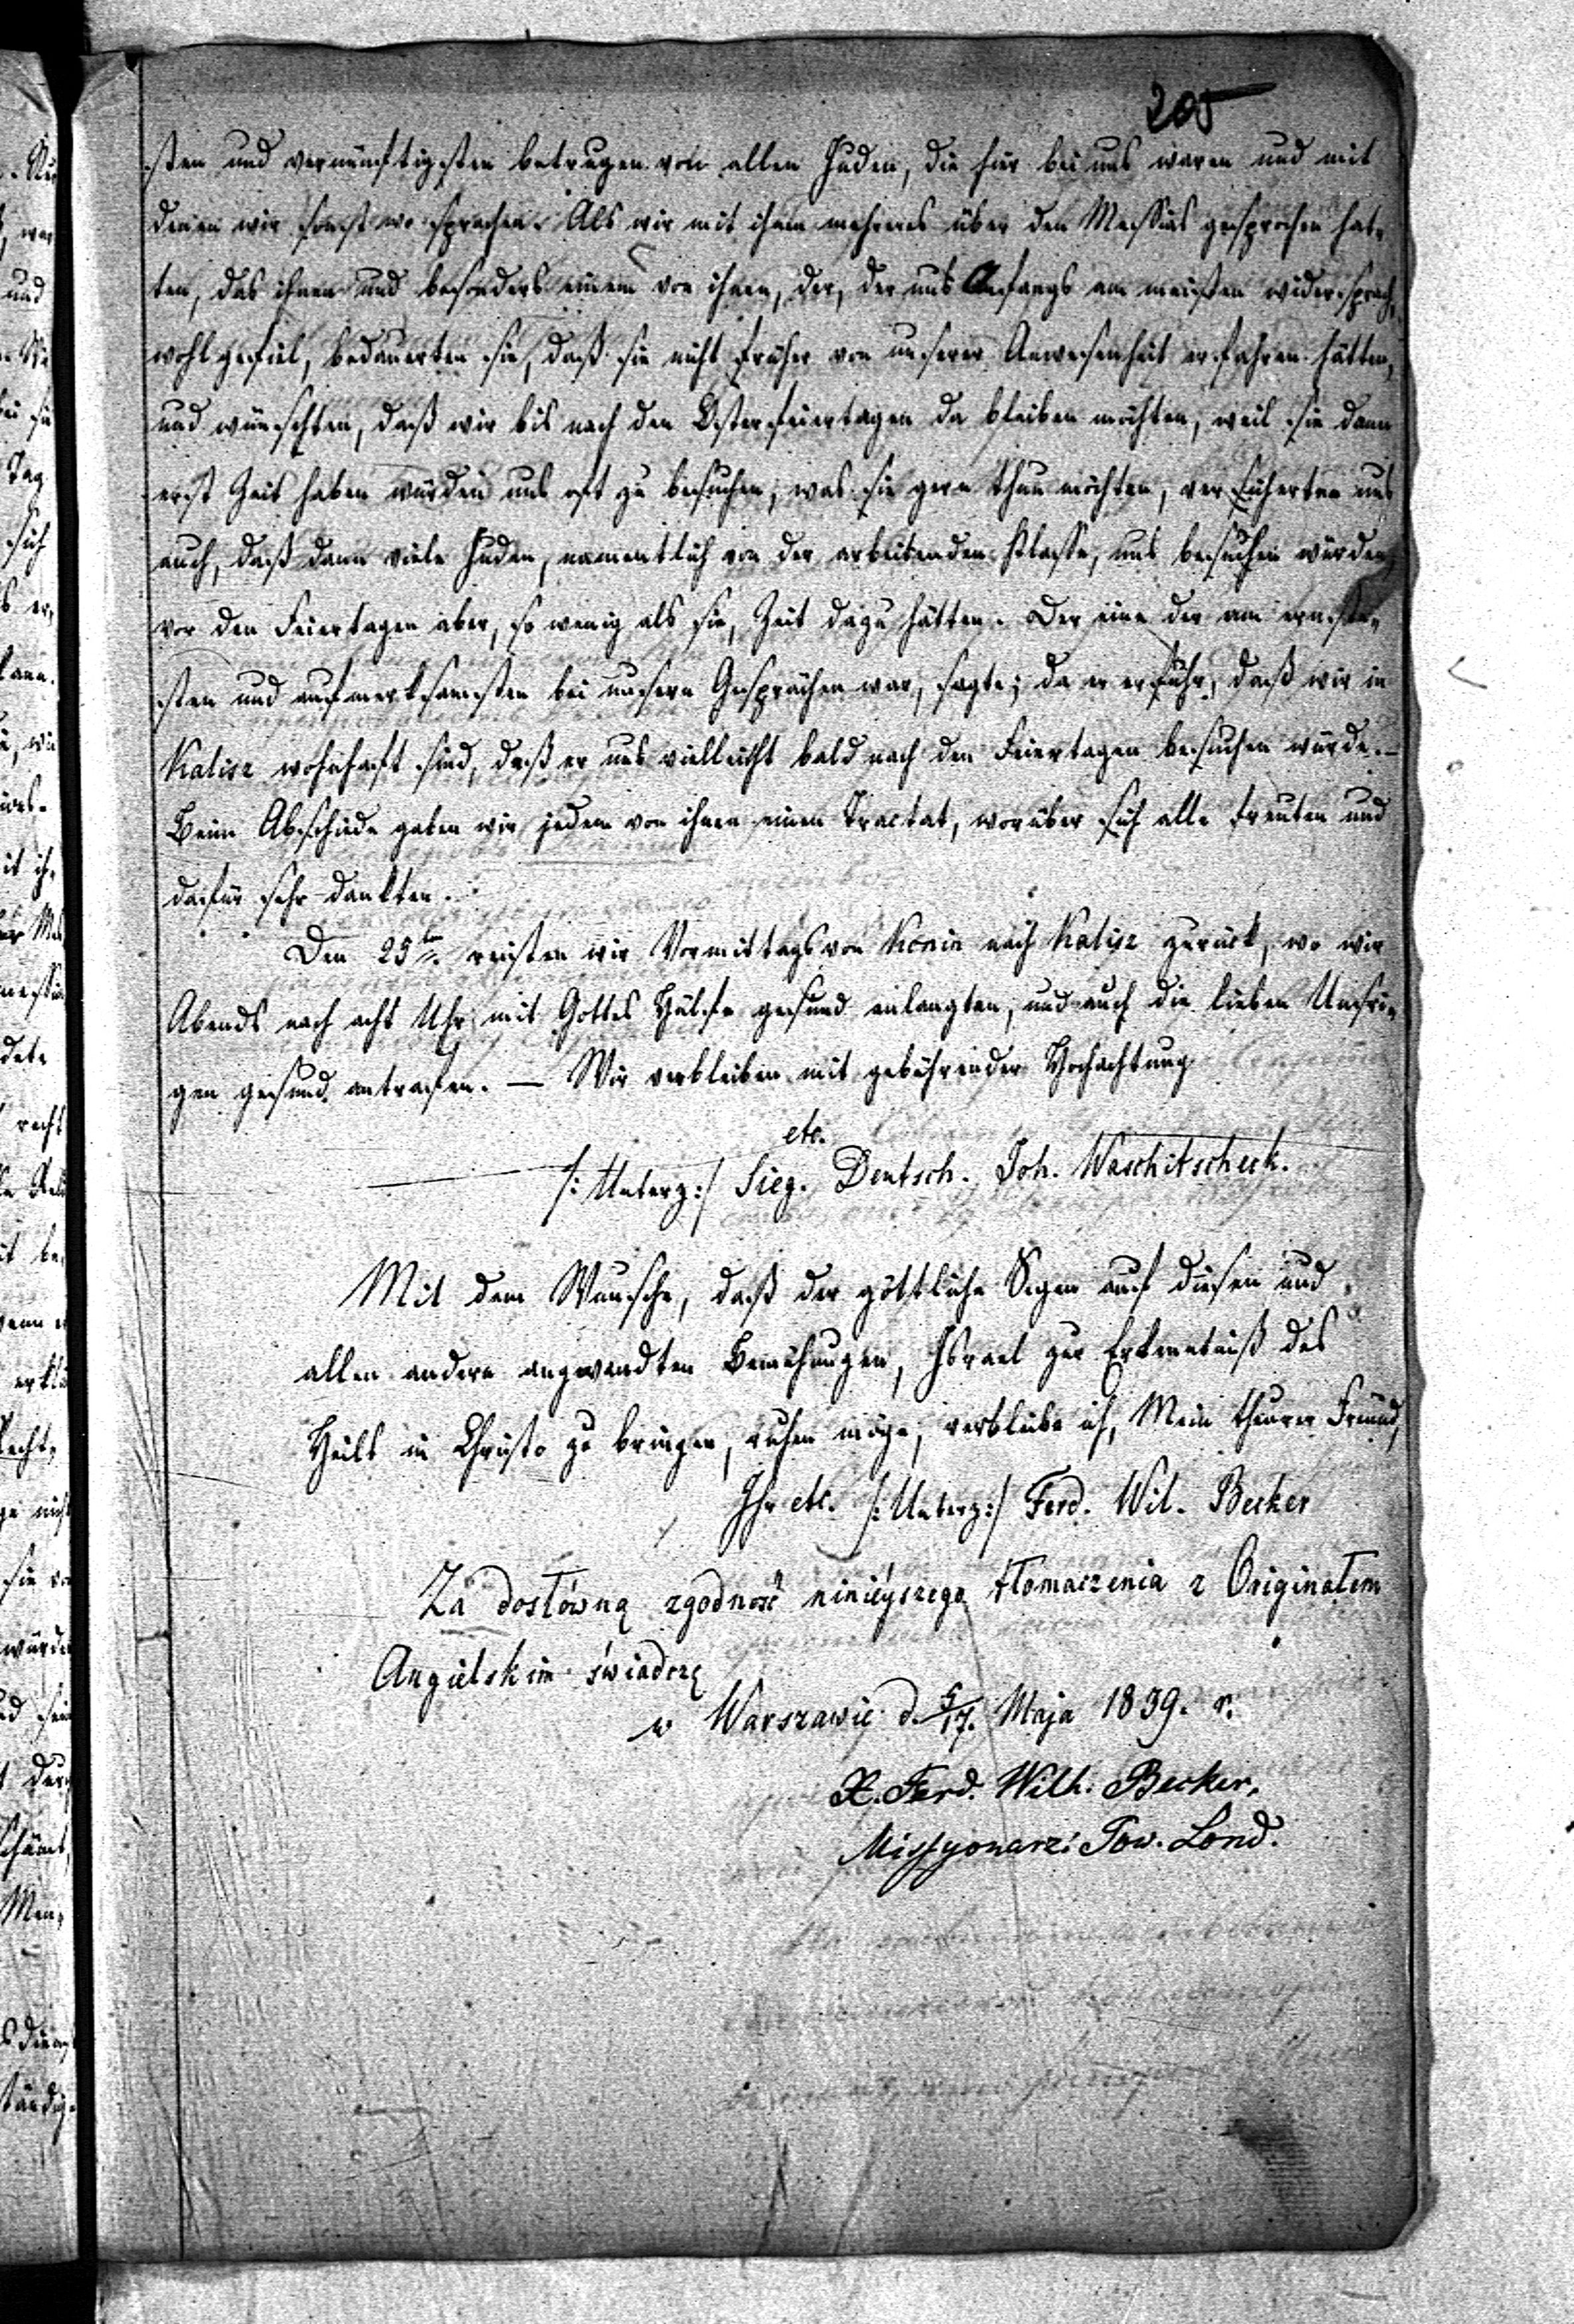 205
sten und vernünftigsten betrugen von allen Juden, die hier bei uns waren und mit
denen wir sonst wo sprachen. Als wir mit ihnen mehreres über den Messias gesprochen hat-
ten, das ihnen und besonders einem von ihnen, der, der uns Anfangs am meisten widersprach,
wohl gefiel, bedauerten sie, daß sie nicht früher von unserer Anwesenheit erfahren hätten,
und wünschten, daß wir bis nach den Osterfeiertagen da bleiben möchten, weil sie dann
erst Zeit haben würden uns oft zu besuchen, was sie gern thun möchten, versicherten uns
auch, daß dann viele Juden, namentlich von der arbeitenden Klasse, uns besuchen würden,
vor den Feiertagen aber, so wenig als sie, Zeit dazu hätten. Der eine der am ernste-
sten und aufmerksamsten bei unsern Gesprächen war, sagte; da er erfuhr, daß wir in
Kalisz wohnhaft sind, daß er uns vielleicht bald nach den Feiertagen besuchen würde. –
Beim Abschiede gaben wir jedem von ihnen einen Tractat, worüber sich alle freuten und
dafür sehr dankten.
Den 25ten reisten wir Vormittags von Konin nach Kalisz zurück, wo wir
Abends nach acht Uhr mit Gottes Hülfe gesund anlangten, und auch die lieben Unsri-
gen gesund antrafen. — Wir verbleiben mit gebührender Hochachtung
etc.
/: Unterz:/ Sieg. Deutsch. Joh. Waschitscheck.
Mit dem Wunsche, daß der göttliche Segen auf diesen und
allen andern angewandten Bemühungen, Israel zur Erkenntniß des
Heils in Christo zu bringen, ruhen möge, verbleibe ich, Mein theurer Freund,
Ihr etc. /: Unterz:/ Ferd. Wil. Becker
Za dosłówną zgodność ninieyszego tłomaczenia z Originałem
Angielskim świadczę
w Warszawie d. 5/17. Maja 1839. r.
X. Ferd. Wilh. Becker,
Missyonarz Tow. Lond.